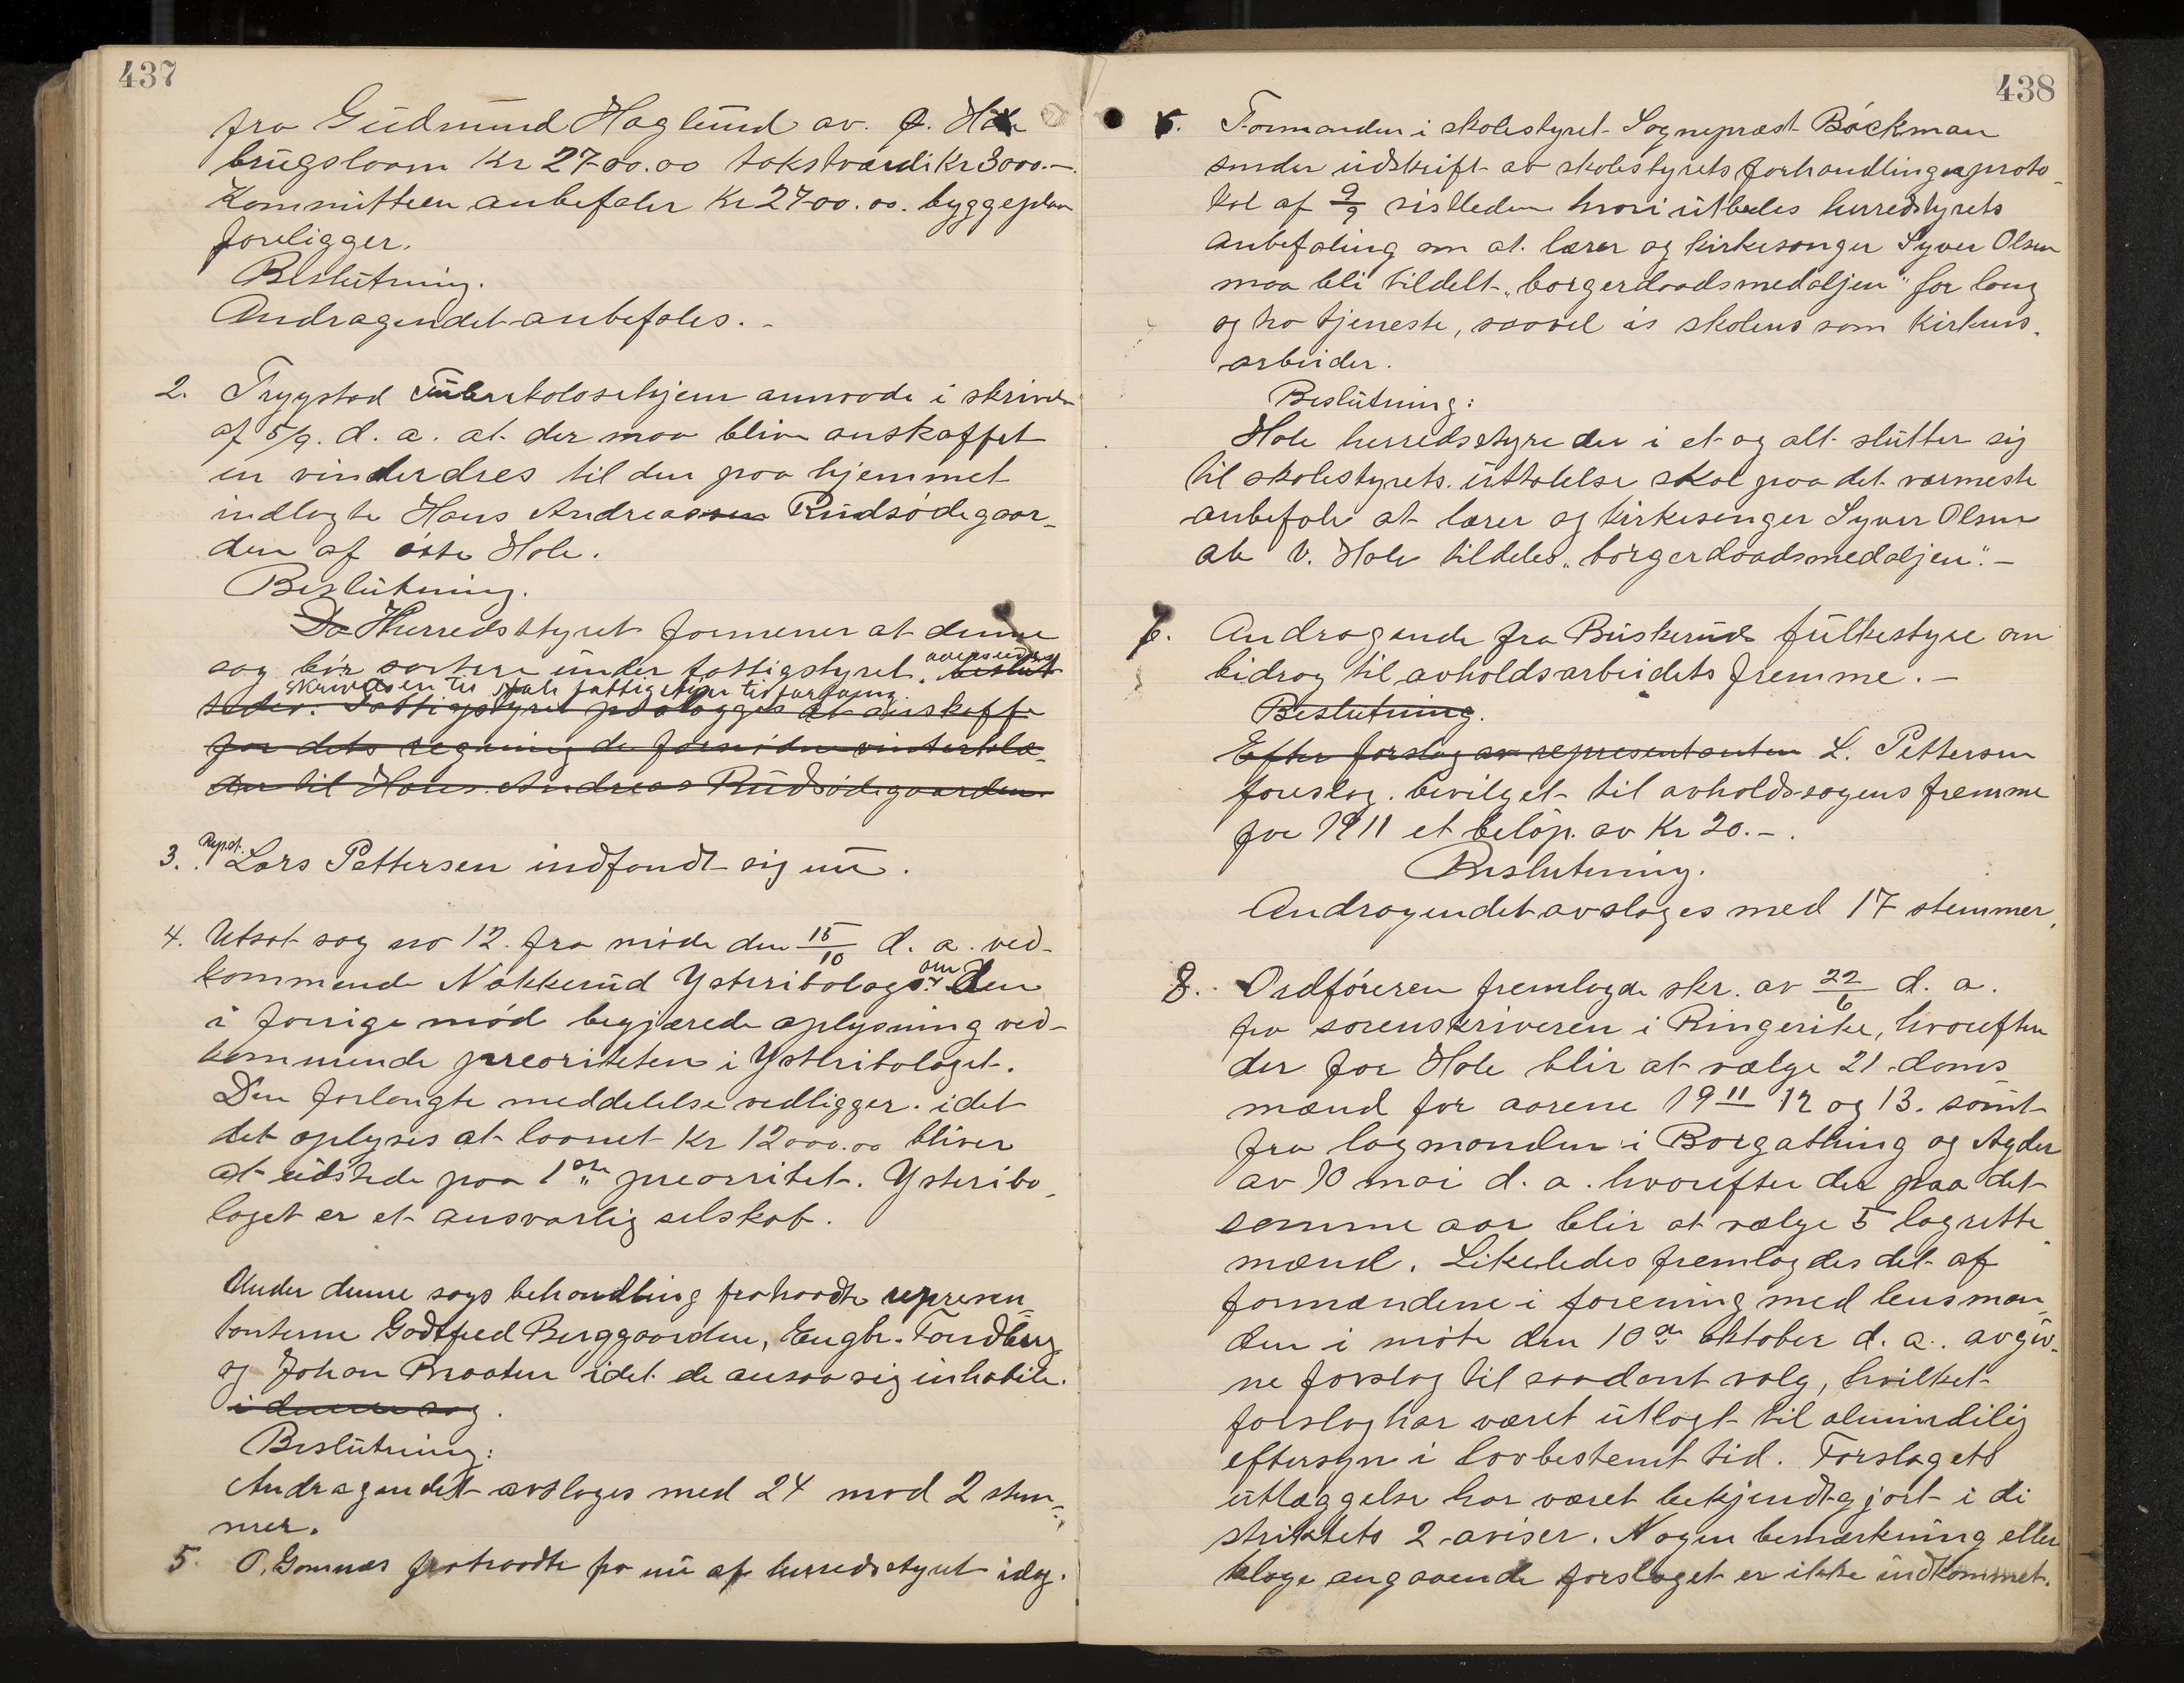 437
fra Gudmund Haglund av. 
brugslaan Kr 2700.00 takstværdi Kr 3000.–
Kommitteen anbefaler Kr 2700.00. byggeplan
foreligger.
Beslutning.
Andragendet anbefales. –
2. Frygstad Tuberkolosehjem anmode i skrivelse
af 5/9. d. a. at der maa blive anskaffet
en vinderdres til den paa hjemmet
indlagte Hans Andreassen Rudsødegaar-
den af østre Hole.
Beslutning.
Da Herredsstyret formener at denne
sag bør sortere under fattigstyret, oversendes beslut-
skrivelsen til Hole fattigstyre til
tedes. Fattigstyret paalægges at anskaffe
for dets regning de fornødne vinterklæ-
der til Hans Andreas Rudsødegaarden.
3. Rep.at. Lars Pettersen indfandt sig nu.
4. Utsat sag no 12. fra møde den 15/10 d. a. ved-
kommende Nakkerud Ysteribolags om den
i forrige mød begjærede oplysning ved-
kommende preoriteten i Ysteribolaget.
Den forlangte meddelelse vedligger. idet
det oplyses at laanet Kr 12000.00 bliver
at udstede paa 1ste preorritet. Ysteribo-
laget er et ansvarlig selskab.
Under denne sags behandling frahaadte represen-
tanterne Godtfred Berggaarden, Engbr. Fandberg
og Johan Braaten idet de ansaa sig inhabile.
i denne sag.
Beslutning:
Andragendet avslages med 24 mod 2 stem-
mer.
5. O. Gomnæs frahaadte fra nu af herredsstyret idag.
438
6. Formanden i skolestyret Sognepræst Bøckman
sender udskrift av skolestyrets forhandlingsproto-
kol af 9/9 sistleden hvori utbedes herredstyrets
anbefaling om at lærer og kirkesanger Syver Olsen
maa bli tildelt „borgerdaadsmedaljen" for lang
og tro tjeneste, saavel i skolens som Kirkens
arbeider.
Beslutning:
Hole herredsstyre der i et og alt slutter sig
til skolestyrets uttalelse skal paa det varmeste
anbefale at lærer og kirkesanger Syver Olsen
av V. Hole tildeles „borgerdaadsmedaljen". –
7. Andragende fra Buskeruds fulkestyre om
bidrag til avholdsarbeidets fremme. –
Beslutning.
Efter forslag av representanten L. Pettersen
foreslog. bevilget til avholdssagens fremme
for 1911 et beløp. av Kr 20.–.
Beslutning.
Andragendet avslages med 17 stemmer.
8. Ordføreren fremlagde skr. av 22/6 d. a.
fra sorenskriveren i Ringerike, hvorefter
der for Hole blir at vælge 21 doms
mænd for aarene 1911 12 og 13. samt
fra lagmanden i Borgathing og Agder
av 10 mai d. a. hvorefter der paa det
samme aar blir at vælge 5 lagrette
mænd. Likeledes fremlagdes det af
formændene i forening med lensman-
den i møte den 10de oktober d. a. avgiv-
ne forslag til saadant valg, hvilket
forslag har været utlagt til almindelig
eftersyn i lovbestemt tid. Forslagets
utlæggelse har været bekjendtgjort i di
striktets 2 aviser. Nogen bemærkning eller
klage angaaende forslaget er ikke indkommet.